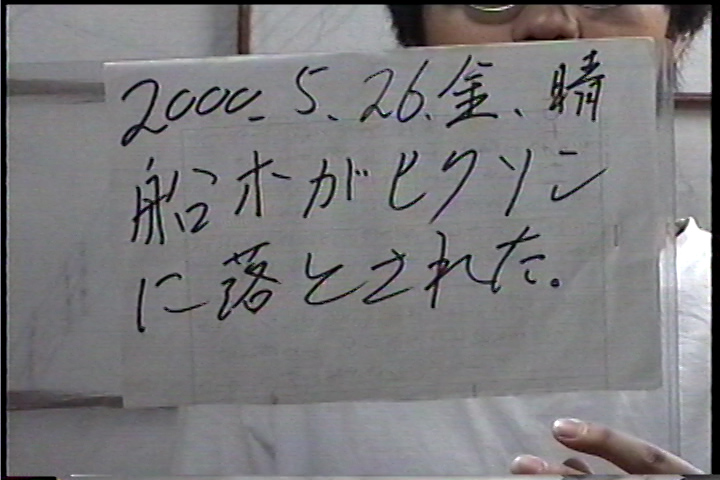 2000.5.26.金、晴
船木がヒクソン
に落とされた。